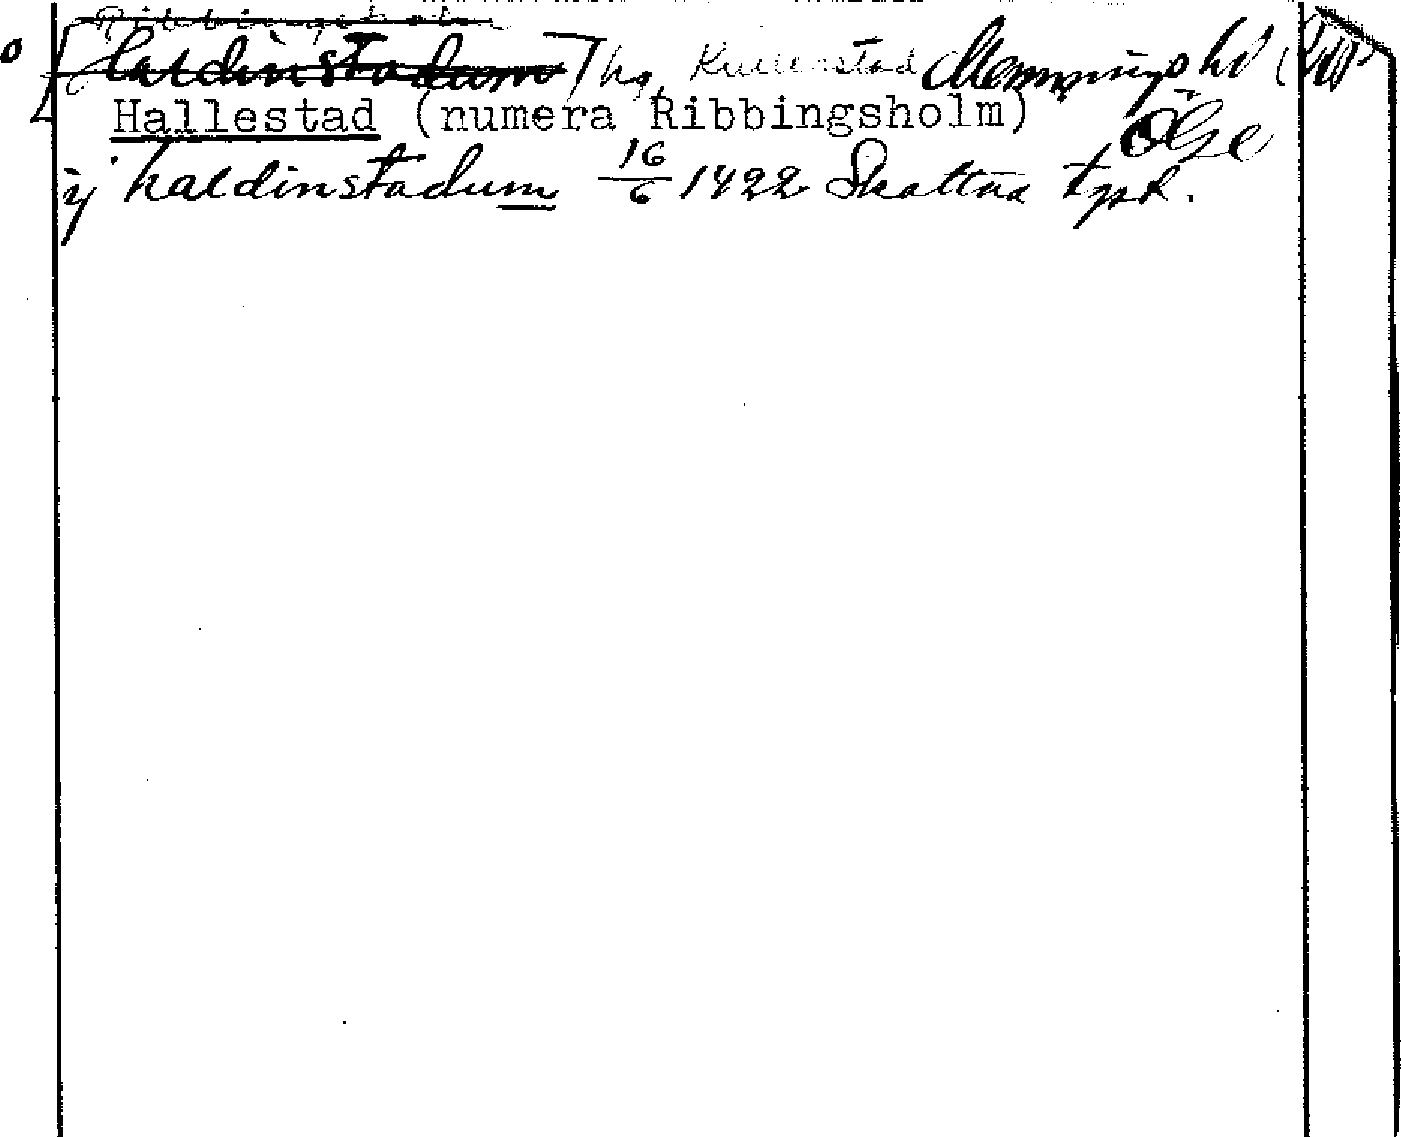 Ribbingsholm
[Haldinstadum] hg, Kullerstad Memmings hd
Hallestad (numera Ribbingsholm) Ög
ij haldinstadum 16/6 1422 Skoklosters